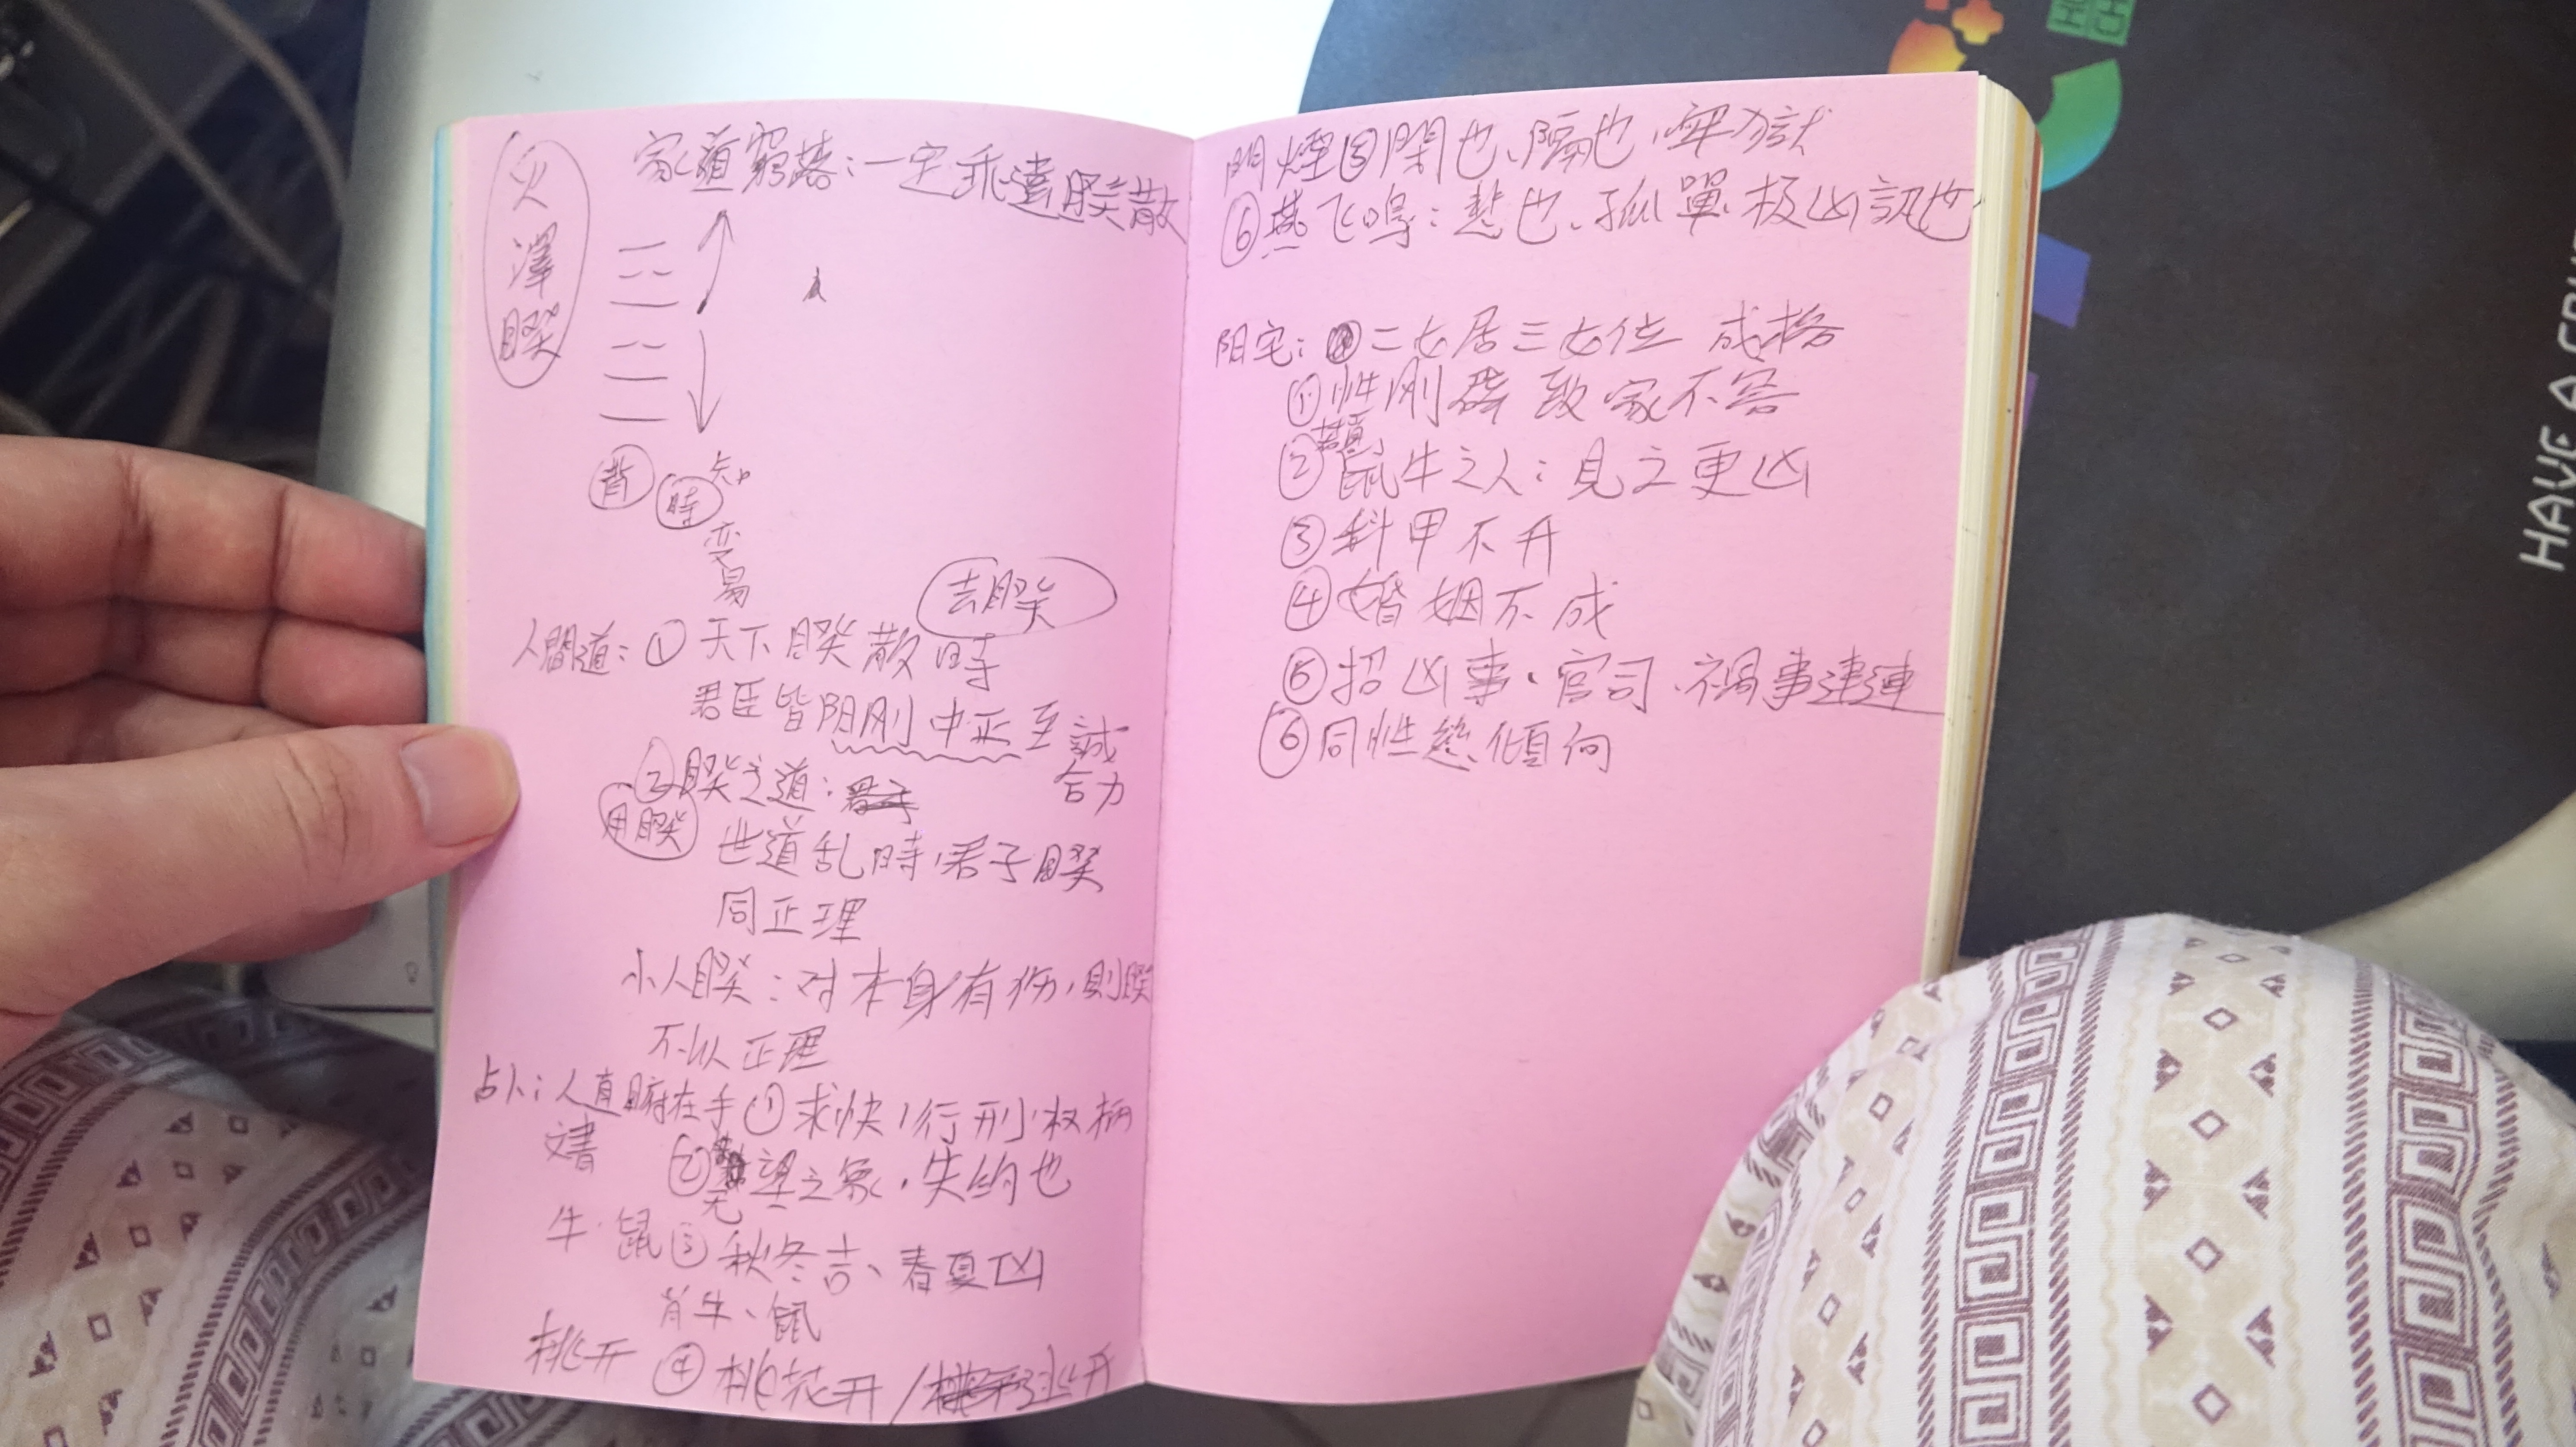 火
澤
睽
家道窮落：一定乖違睽散
背
時
知
变
易
去睽
人間道：① 天下睽散時
君臣皆阳刚中正至誠
合力
②睽之道：
用睽
世道乱時，君子睽
同正理
小人睽：对本身有伤，則睽
不以正理
占卜：人有 在手 ① 求快，行刑，权柄
文書
② 无望之象，失約也
牛·鼠 ③ 秋冬吉、春夏凶
肖牛、鼠
桃开 ④ 桃花开
閉也、隔也、牢獄
⑥ 燕飞鳴：悲也、孤單、极凶訊也
阳宅： 二七居三七位 成格
① 性刚 致家不容
② 鼠牛之人：見之更凶
③ 科甲不升
④ 婚姻不成
⑤ 招凶事、官司、禍事連連
⑥ 同性恋傾向
HAVE A